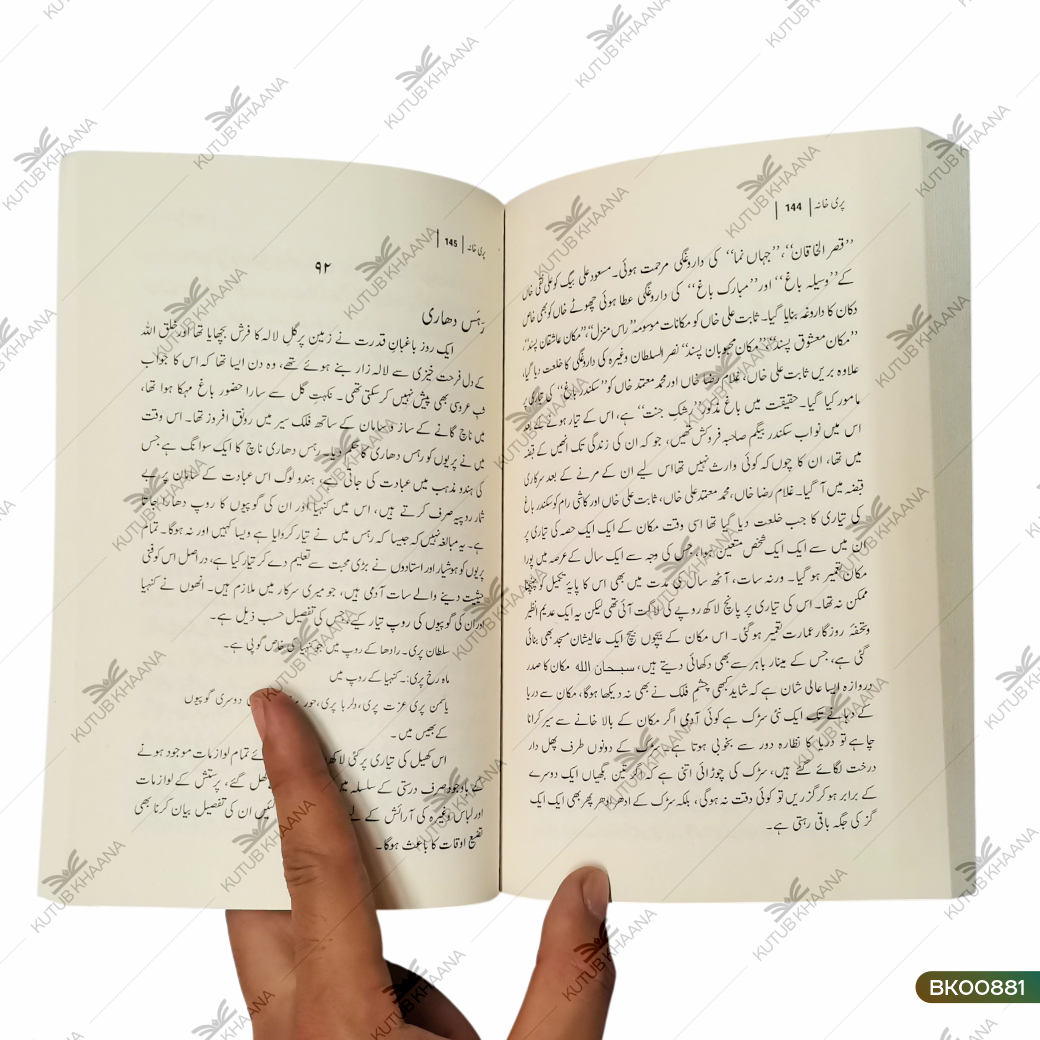 پری خانہ | 144 |
’’قصر الخاقان‘‘، ’’جہاں نما‘‘ کی داروغگی مرحمت ہوئی۔ مسعود علی بیگ کو علی نقی خاں
کے ’’وسیلہ باغ‘‘ اور ’’مبارک باغ‘‘ کی داروغگی عطا ہوئی چھوٹے خاں کو بھی خاص
دکان کا داروغہ بنایا گیا۔ ثابت علی خاں کو مکانات موسومہ ’’راس منزل‘‘، ’’مکان عاشقان پسند‘‘،
’’مکان معشوق پسند‘‘، ’’مکان محبوباں پسند‘‘ نصر السلطان وغیرہ کی داروغگی کا خلعت دیا گیا،
علاوہ بریں ثابت علی خاں، غلام رضا خاں اور محمد معتمد خاں کو ’’سکندر باغ‘‘ کی تیاری پر
مامور کیا گیا۔ حقیقت میں باغ مذکور ’’رشک جنت‘‘ ہے، اس کے تیار ہونے کے بعد
اس میں نواب سکندر بیگم صاحبہ فروکش تھیں، جو کہ ان کی زندگی تک انھیں کے قبضہ
میں تھا، ان کا چوں کہ کوئی وارث نہیں تھا اس لیے ان کے مرنے کے بعد سرکاری
قبضہ میں آ گیا۔ غلام رضا خاں، محمد معتمد علی خاں، ثابت علی خاں اور کاشی رام کو سکندر باغ
کی تیاری کا جب خلعت دیا گیا تھا اسی وقت مکان کے ایک ایک حصہ کی تیاری پر
ان میں سے ایک ایک شخص متعین ہوا، جس کی وجہ سے ایک سال کے عرصہ میں پورا
مکان تعمیر ہو گیا۔ ورنہ سات، آٹھ سال کی مدت میں بھی اس کا پایۂ تکمیل کو پہنچنا
ممکن نہ تھا۔ اس کی تیاری پر پانچ لاکھ روپے کی لاگت آئی تھی لیکن یہ ایک عدیم النظیر
و تحفۂ روزگار عمارت تعمیر ہو گئی۔ اس مکان کے بیچوں بیچ ایک عالیشان مسجد بھی بنائی
گئی ہے، جس کے مینار باہر سے بھی دکھائی دیتے ہیں، سبحان اللہ مکان کا صدر
دروازہ ایسا عالی شان ہے کہ شاید کبھی چشم فلک نے بھی نہ دیکھا ہوگا، مکان سے دریا
کے دہانے تک ایک نئی سڑک ہے کوئی آدمی اگر مکان کے بالا خانے سے سیر کرانا
چاہے تو دریا کا نظارہ دور سے بخوبی ہوتا ہے۔ سڑک کے دونوں طرف پھل دار
درخت لگائے گئے ہیں، سڑک کی چوڑائی اتنی ہے کہ اگر تین بگھیاں ایک دوسرے
کے برابر ہو کر گزریں تو کوئی دقت نہ ہوگی، بلکہ سڑک کے ادھر ادھر پھر بھی ایک ایک
گز کی جگہ باقی رہتی ہے۔
پری خانہ | 145 |
۹۲
رہَس دھاری
ایک روز باغبان قدرت نے زمین پر گل لالہ کا فرش بچھایا تھا اور خلق اللہ
کے دل فرحت خیزی سے لالہ زار بنے ہوئے تھے، وہ دن ایسا تھا کہ اس کا جواب
شب عروسی بھی پیش نہیں کر سکتی تھی۔ نکہتِ گل سے سارا حضور باغ مہکا ہوا تھا،
میں ناچ گانے کے ساز و سامان کے ساتھ فلک سیر میں رونق افروز تھا۔ اس وقت
میں نے پریوں کو رہس دھاری کا حکم دیا۔ رہس دھاری ناچ کا ایک سوانگ ہے جس
کی ہندو مذہب میں عبادت کی جاتی ہے، ہندو لوگ اس عبادت کے سامان پر بے
شمار روپیہ صرف کرتے ہیں، اس میں کنہیا اور ان کی گوپیوں کا روپ دھارا جاتا
ہے۔ یہ مبالغہ نہیں کہ جیسا کہ رہس میں نے تیار کروایا ہے ویسا کہیں اور نہ ہوگا۔ تمام
پریوں کو ہوشیار اور استادوں نے بڑی محبت سے تعلیم دے کر تیار کیا ہے، دراصل اس کو فنی
حیثیت دینے والے سات آدمی ہیں، جو میری سرکار میں ملازم ہیں۔ انھوں نے کنہیا
اور ان کی گوپیوں کی روپ تیار کیے، جس کی تفصیل حسب ذیل ہے۔
سلطان پری۔ رادھا کے روپ میں جو کنہیا کی خاص گوپی ہے۔
ماہ رخ پری:۔ کنہیا کے روپ میں
یاسمن پری عزت پری، دلربا پری، حور دوسری گوپیوں
کے بھیس میں۔
اس کھیل کی تیاری پر کئی لاکھ ئے تمام لوازمات موجود ہونے
کے باوجود صرف درستی کے سلسلہ میں گئے، پرستش کے لوازمات
اور لباس وغیرہ کی آرائش کے ان کی تفصیل بیان کرنا بھی
تضیع اوقات کا باعث ہوگا۔
KUTUB KHAANA
BK00881